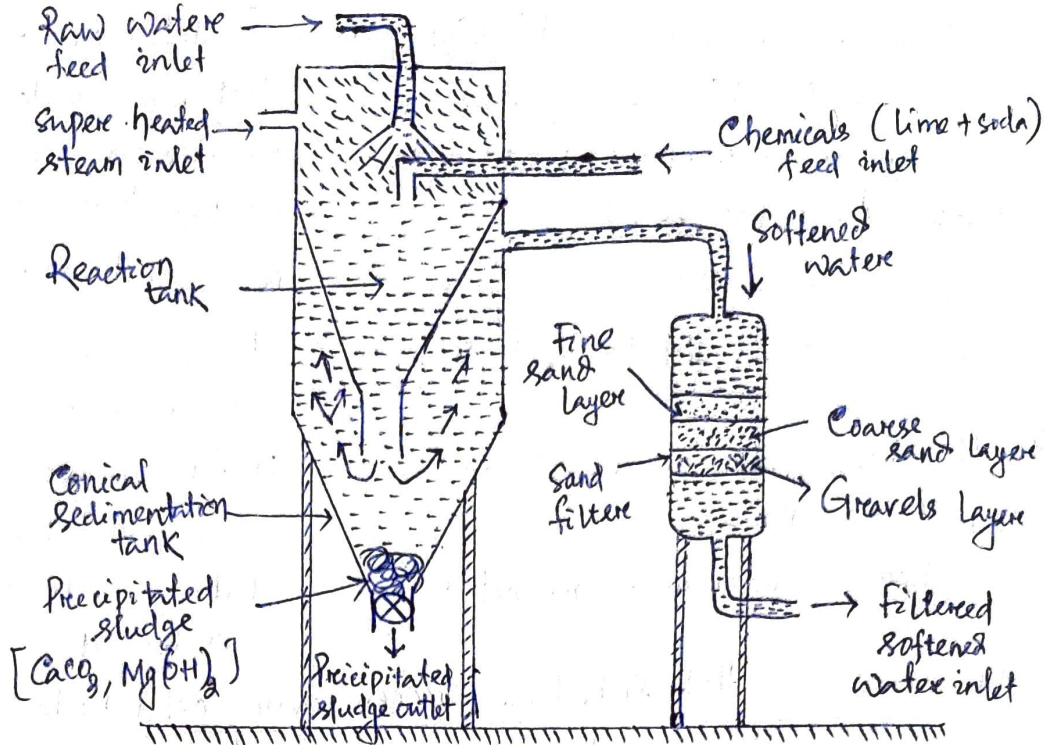 Raw watere
feed inlet
Supere heated
steam inlet
Chemicals (lime + soda)
feed inlet
Softened
watere
Reaction
tank
Fine
sand
layer
Coarse
sand layere
Sand
filtere
Greavels Layere
Conical
sedimentation
tank
Precipitated
sludge
[CaCO3, Mg(OH)2]
Pricipitated
sludge outlet
Filtered
softened
water inlet